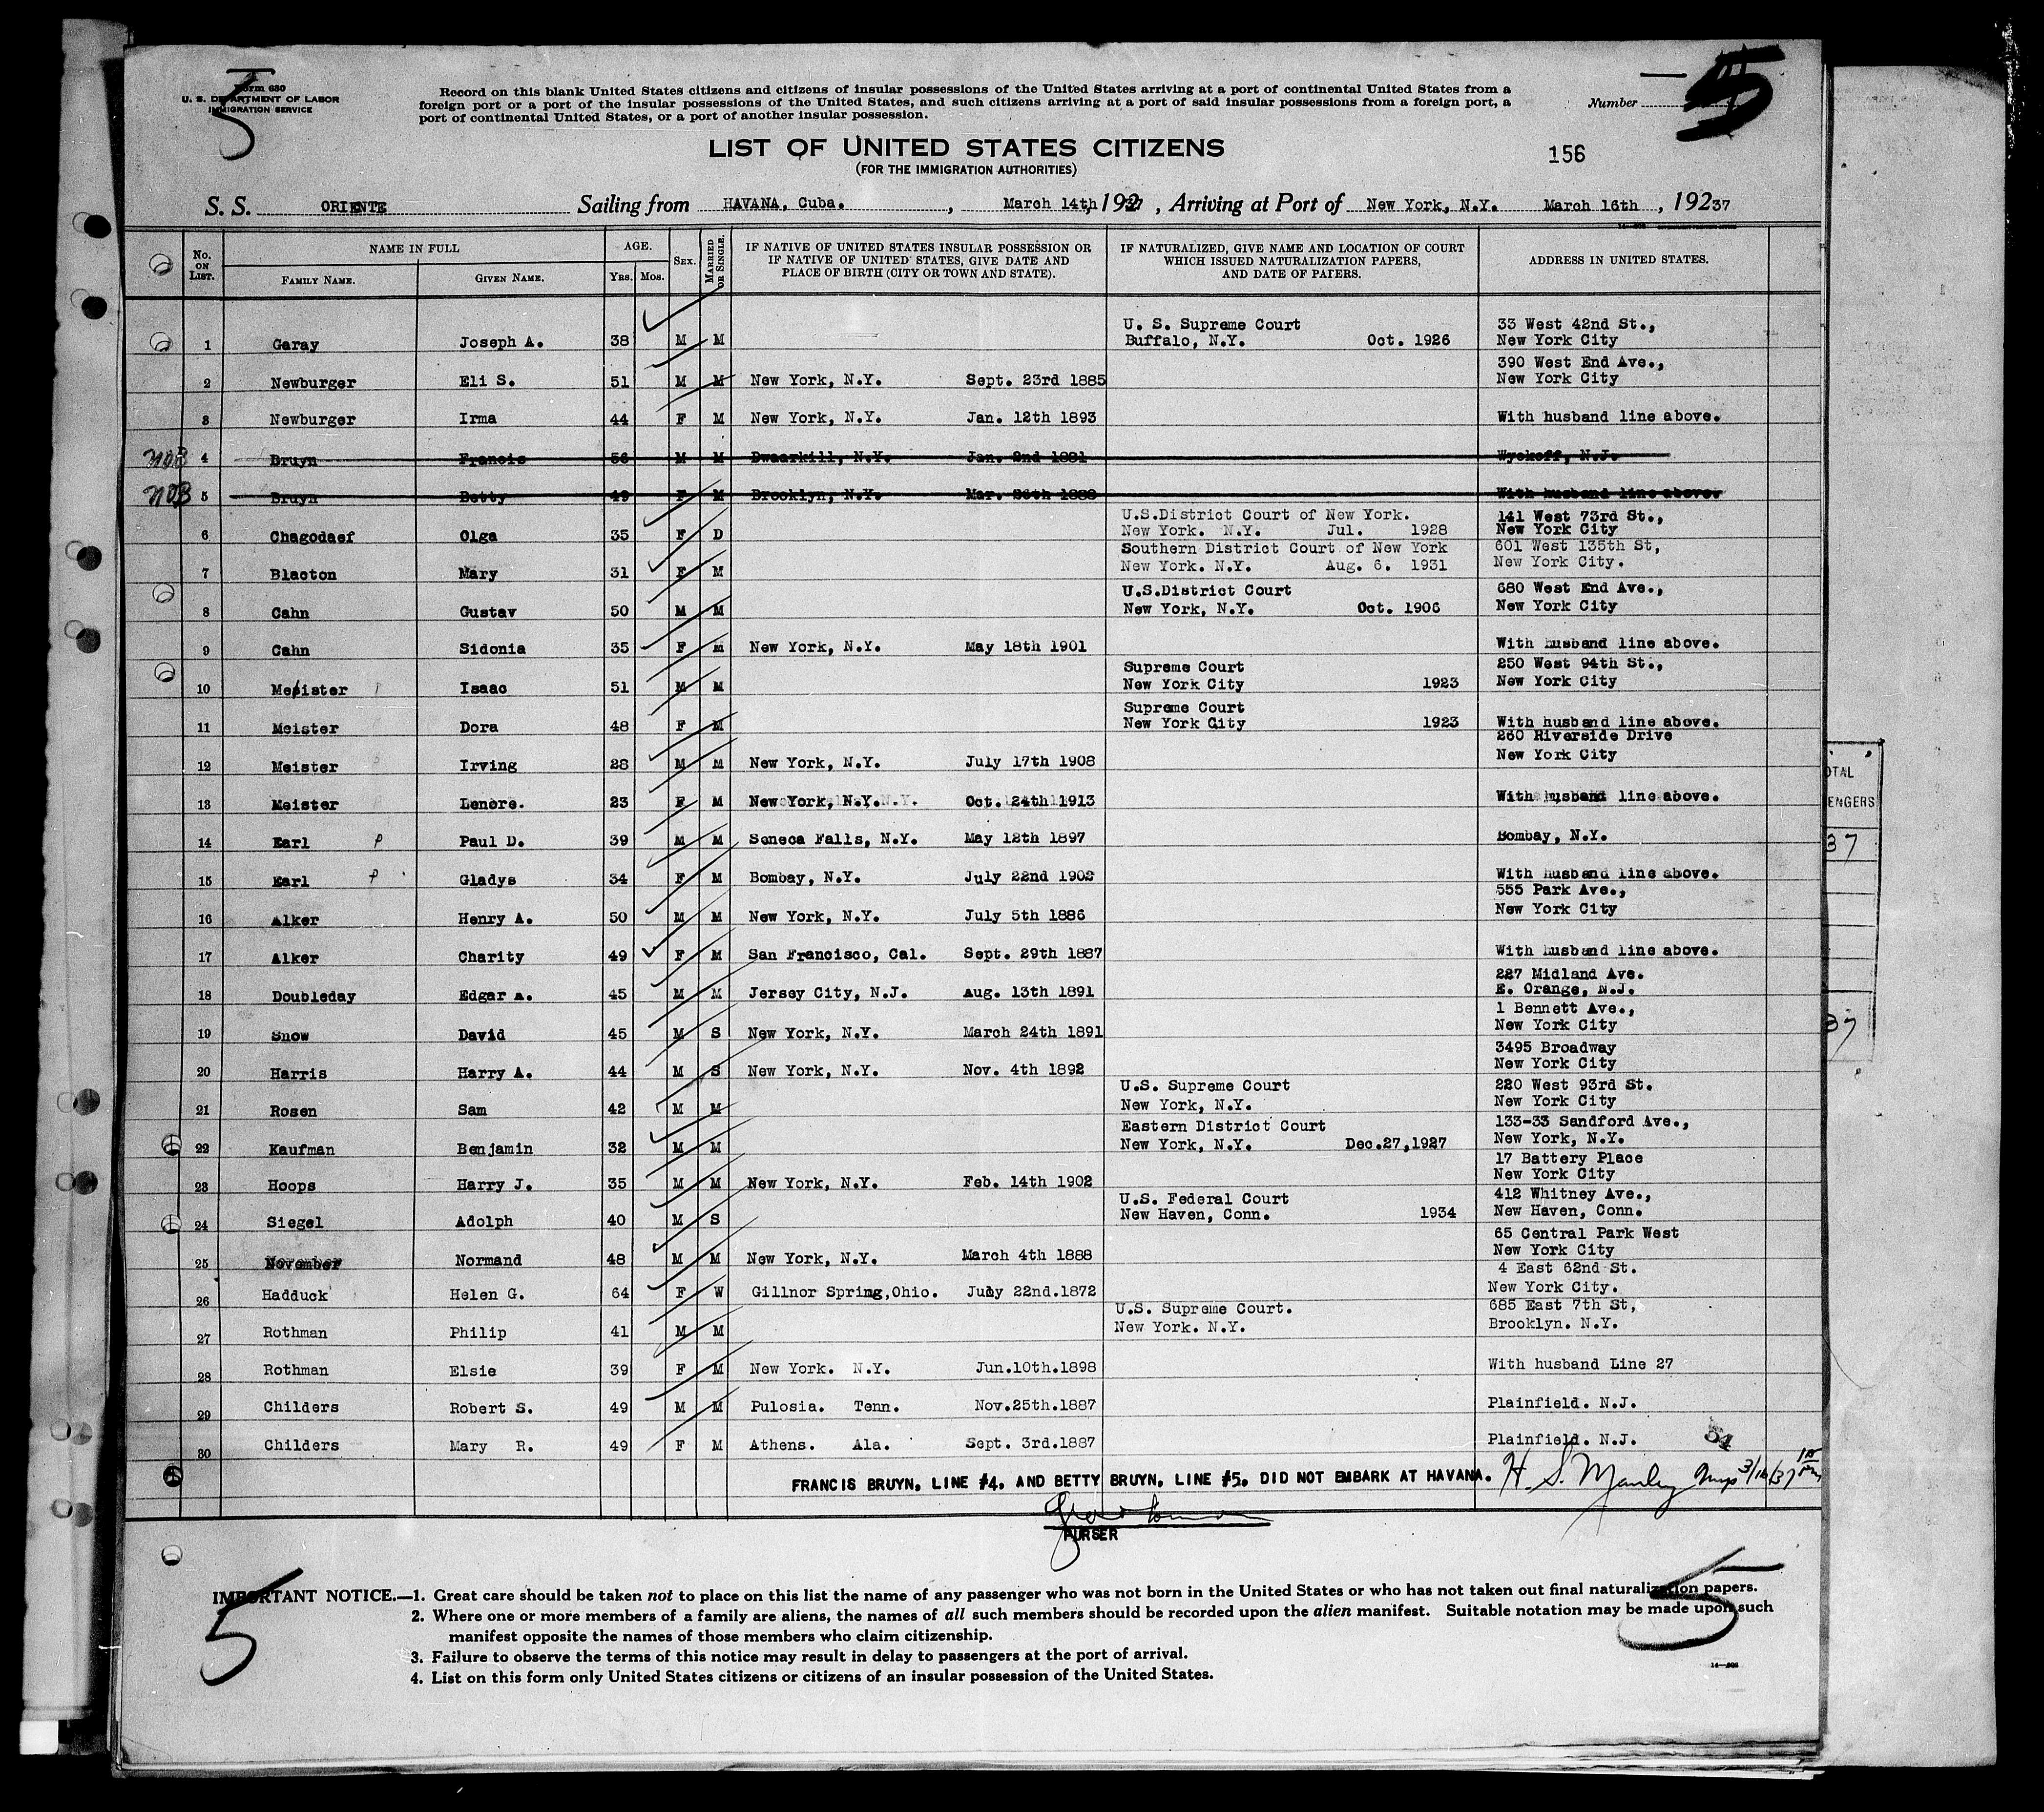 Form 630
U. S. DEPARTMENT OF LABOR
IMMIGRATION SERVICE
5
Record on this blank United States citizens and citizens of insular possessions of the United States arriving at a port of continental United States from a
foreign port or a port of the insular possessions of the United States, and such citizens arriving at a port of said insular possessions from a foreign port, a
port of continental United States, or a port of another insular possession.
Number 5
LIST OF UNITED STATES CITIZENS
(FOR THE IMMIGRATION AUTHORITIES)
156
S. S. ORIENTE Sailing from HAVANA, Cuba. , March 14th, 1937 , Arriving at Port of New York, N.Y. March 16th , 19237
No. ON LIST. NAME IN FULL FAMILY NAME. GIVEN NAME. AGE. YRS. MOS. SEX. MARRIED OR SINGLE. IF NATIVE OF UNITED STATES INSULAR POSSESSION OR IF NATIVE OF UNITED STATES, GIVE DATE AND PLACE OF BIRTH (CITY OR TOWN AND STATE). IF NATURALIZED, GIVE NAME AND LOCATION OF COURT WHICH ISSUED NATURALIZATION PAPERS, AND DATE OF PAPERS. ADDRESS IN UNITED STATES.
1 Garay Joseph A. 38 M M U. S. Supreme Court Buffalo, N.Y. Oct. 1926 33 West 42nd St., New York City
2 Newburger Eli S. 51 M M New York, N.Y. Sept. 23rd 1885 390 West End Ave., New York City
3 Newburger Irma 44 F M New York, N.Y. Jan. 12th 1893 With husband line above.
NOB 4 Bruyn Francis 56 M M Dwaarkill, N.Y. Jan. 2nd 1881 Wyckoff, N.J.
NOB 5 Bruyn Betty 49 F M Brooklyn, N.Y. Mar. 26th 1888 With husband line above.
6 Chagodaef Olga 35 F D U.S.District Court of New York. New York. N.Y. Jul. 1928 141 West 73rd St., New York City
7 Blacton Mary 31 F M Southern District Court of New York New York. N.Y. Aug. 6. 1931 601 West 135th St, New York City.
8 Cahn Gustav 50 M M U.S.District Court New York, N.Y. Oct. 1906 680 West End Ave., New York City
9 Cahn Sidonia 35 F M New York, N.Y. May 18th 1901 With husband line above.
10 Meister Isaac 51 M M Supreme Court New York City 1923 250 West 94th St., New York City
11 Meister Dora 48 F M Supreme Court New York City 1923 With husband line above.
12 Meister Irving 28 M M New York, N.Y. July 17th 1908 260 Riverside Drive New York City
13 Meister Lenore. 23 F M New York, N.Y. Oct. 24th 1913 With husband line above.
14 Earl P Paul D. 39 M M Seneca Falls, N.Y. May 12th 1897 Bombay, N.Y.
15 Earl P Gladys 34 F M Bombay, N.Y. July 22nd 1902 With husband line above.
16 Alker Henry A. 50 M M New York, N.Y. July 5th 1886 555 Park Ave., New York City
17 Alker Charity 49 F M San Francisco, Cal. Sept. 29th 1887 With husband line above.
18 Doubleday Edgar A. 45 M M Jersey City, N.J. Aug. 13th 1891 227 Midland Ave. E. Orange, N.J.
19 Snow David 45 M S New York, N.Y. March 24th 1891 1 Bennett Ave., New York City
20 Harris Harry A. 44 M S New York, N.Y. Nov. 4th 1892 3495 Broadway New York City
21 Rosen Sam 42 M M U.S. Supreme Court New York, N.Y. 220 West 93rd St. New York City
22 Kaufman Benjamin 32 M M Eastern District Court New York, N.Y. Dec.27,1927 133-33 Sandford Ave., New York, N.Y.
23 Hoops Harry J. 35 M M New York, N.Y. Feb. 14th 1902 17 Battery Place New York City
24 Siegel Adolph 40 M S U.S. Federal Court New Haven, Conn. 1934 412 Whitney Ave., New Haven, Conn.
25 November Normand 48 M M New York, N.Y. March 4th 1888 65 Central Park West New York City
26 Hadduck Helen G. 64 F W Gillnor Spring,Ohio. July 22nd.1872 4 East 62nd St. New York City.
27 Rothman Philip 41 M M U.S. Supreme Court. New York. N.Y. 685 East 7th St, Brooklyn. N.Y.
28 Rothman Elsie 39 F M New York. N.Y. Jun.10th.1898 With husband Line 27
29 Childers Robert S. 49 M M Pulosia. Tenn. Nov.25th.1887 Plainfield. N.J.
30 Childers Mary R. 49 F M Athens. Ala. Sept. 3rd.1887 Plainfield. N.J.
FRANCIS BRUYN, LINE #4. AND BETTY BRUYN, LINE #5. DID NOT EMBARK AT HAVANA. H. S. Manley
PURSER
IMPORTANT NOTICE.—1. Great care should be taken not to place on this list the name of any passenger who was not born in the United States or who has not taken out final naturalization papers.
2. Where one or more members of a family are aliens, the names of all such members should be recorded upon the alien manifest. Suitable notation may be made upon such
manifest opposite the names of those members who claim citizenship.
3. Failure to observe the terms of this notice may result in delay to passengers at the port of arrival.
4. List on this form only United States citizens or citizens of an insular possession of the United States.
5
5
OTAL
ENGERS
37
37